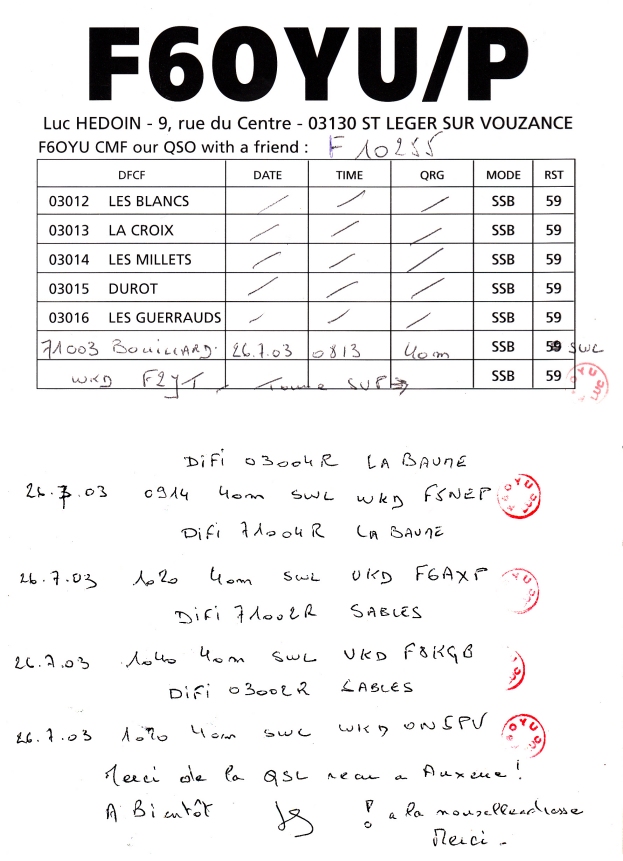 F6OYU/P
Luc HEDOIN - 9, rue du Centre - 03130 ST LEGER SUR VOUZANCE
F6OYU CMF our QSO with a friend : F 10255
DFCF DATE TIME QRG MODE RST
03012 LES BLANCS / / / SSB 59
03013 LA CROIX / / / SSB 59
03014 LES MILLETS / / / SSB 59
03015 DUROT / / / SSB 59
03016 LES GUERRAUDS / / / SSB 59
71003 BOUILLARD. 26.7.03 0813 40m SSB 59 SWL
WKD F2YT / SVP → SSB 59
DiFi 03004R LA BAUME
26.7.03 0914 40m SWL WKD F5NEP
DiFi 71004R LA BAUME
26.7.03 1020 40m SWL WKD F6AXP
DiFi 71002R SABLES
26.7.03 1040 40m SWL WKD F8KGB
DiFi 03002R SABLES
26.7.03 40m SWL WKD ON5PV
Merci de la QSL recu a !
A Bientôt ! a la nouvelle adresse
Merci -